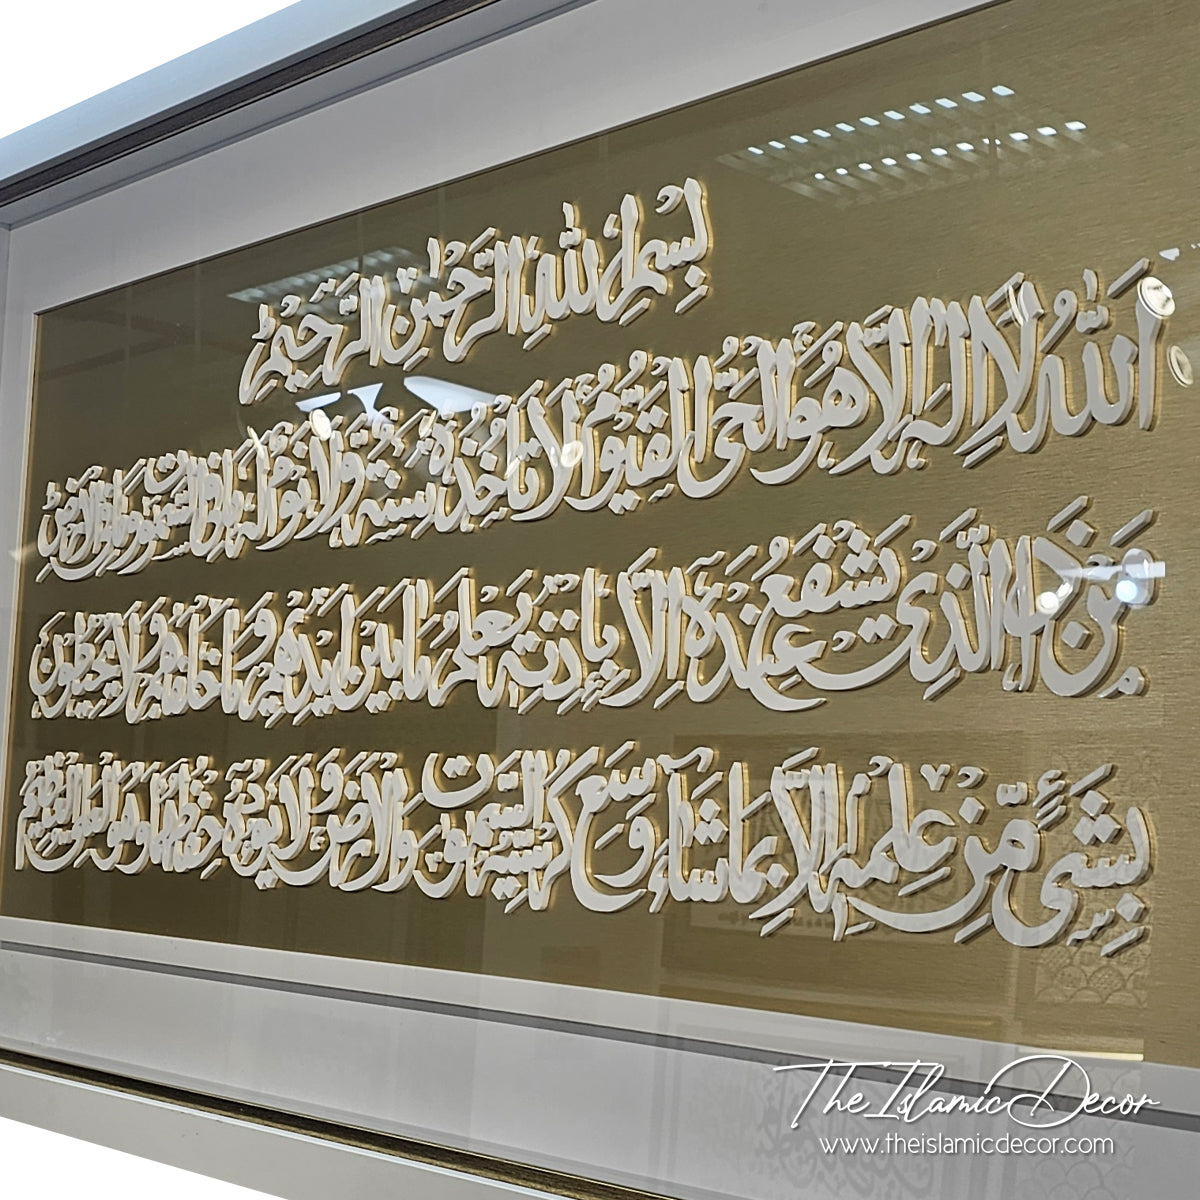 بِسْمِ اللهِ الرَّحْمٰنِ الرَّحِيْمِ
اَللهُ لَا اِلٰهَ اِلَّا هُوَ الْحَىُّ الْقَيُّوْمُ لَا تَأْخُذُهٗ سِنَةٌ وَّلَا نَوْمٌ لَهٗ مَا فِى السَّمٰوٰتِ وَمَا فِى الْاَرْضِ
مَنْ ذَا الَّذِىْ يَشْفَعُ عِنْدَهٗ اِلَّا بِاِذْنِهٖ يَعْلَمُ مَا بَيْنَ اَيْدِيْهِمْ وَمَا خَلْفَهُمْ وَلَا يُحِيْطُوْنَ
بِشَىْءٍ مِّنْ عِلْمِهٖ اِلَّا بِمَا شَآءَ وَسِعَ كُرْسِيُّهُ السَّمٰوٰتِ وَالْاَرْضَ وَلَا يَـُٔوْدُهٗ حِفْظُهُمَا وَهُوَ الْعَلِىُّ الْعَظِيْمُ
The Islamic Decor
www.theislamicdecor.com